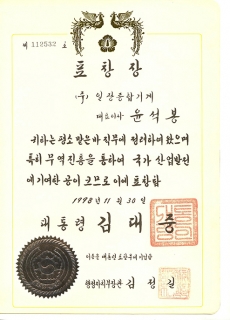 제 112532 호
표창장
(주) 일장종합기계
대표이사 윤석봉
귀하는 평소 맡은바 직무에 정려하여 왔으며
특히 무역진흥을 통하여 국가 산업발전
에 기여한 공이 크므로 이에 표창함
1998년 11월 30일
대통령 김대중
이 증을 대통령 표창부에 기입함
행정자치부장관 김정길